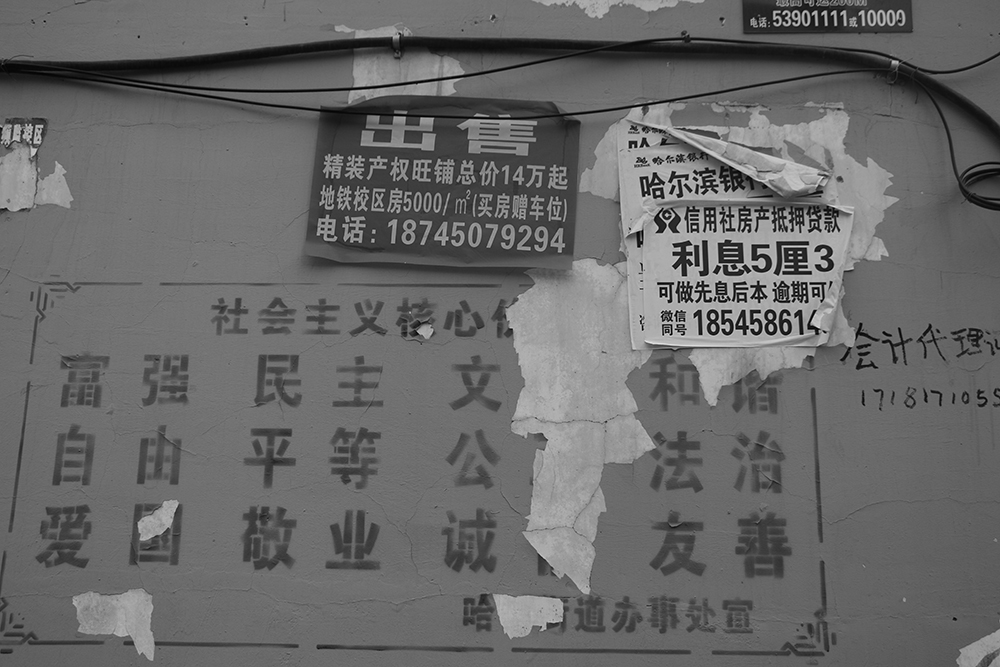 电话：53901111或10000
出售
精装产权旺铺总价14万起
地铁校区房5000/㎡(买房赠车位)
电话：18745079294
哈尔滨银行
哈尔滨银
信用社房产抵押贷款
利息5厘3
可做先息后本 逾期可
微信同号 185458614
会计代理
171817105
社会主义核心
富强 民主 文 和谐
自由 平等 公 法治
爱国 敬业 诚 友善
哈 街道办事处宣